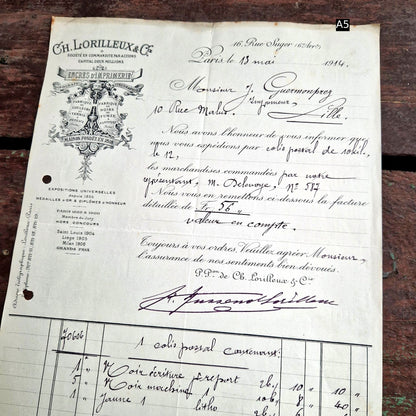 A5
CH. LORILLEUX & Cie
SOCIÉTÉ EN COMMANDITE PAR ACTIONS
CAPITAL DIX MILLIONS
ENCRES D'IMPRIMERIE
MAISON FONDÉE EN 1818
EXPOSITIONS UNIVERSELLES
MÉDAILLES D'OR & DIPLÔMES D'HONNEUR
Membre du Jury
HORS CONCOURS
Saint Louis 1904
Liège 1905
Milan 1906
GRANDS PRIX
16, Rue Suger (6e Arrt)
Paris le 13 mai 1914.
Monsieur J. Guermonprez
Ingénieur,
10 Rue Malus, Lille
Nous avons l'honneur de vous informer que
nous vous expédions par colis postal de
le 12,
les marchandises commandées par notre
représentant, M. Delevoye, No 587
Nous vous en remettons ci-dessous la facture
détaillée de Fr. 56 "
valeur en compte.
Toujours à vos ordres, Veuillez agréer Monsieur,
l'assurance de nos sentiments bien dévoués.
P.Pon de Ch. Lorilleux & Cie
70606 1 colis postal contenant:
1 " Noir écriture p. report 2k 10 " 10 "
5 " Noir machine 1 8 " 40 "
1 " Jaune 1 litho 6